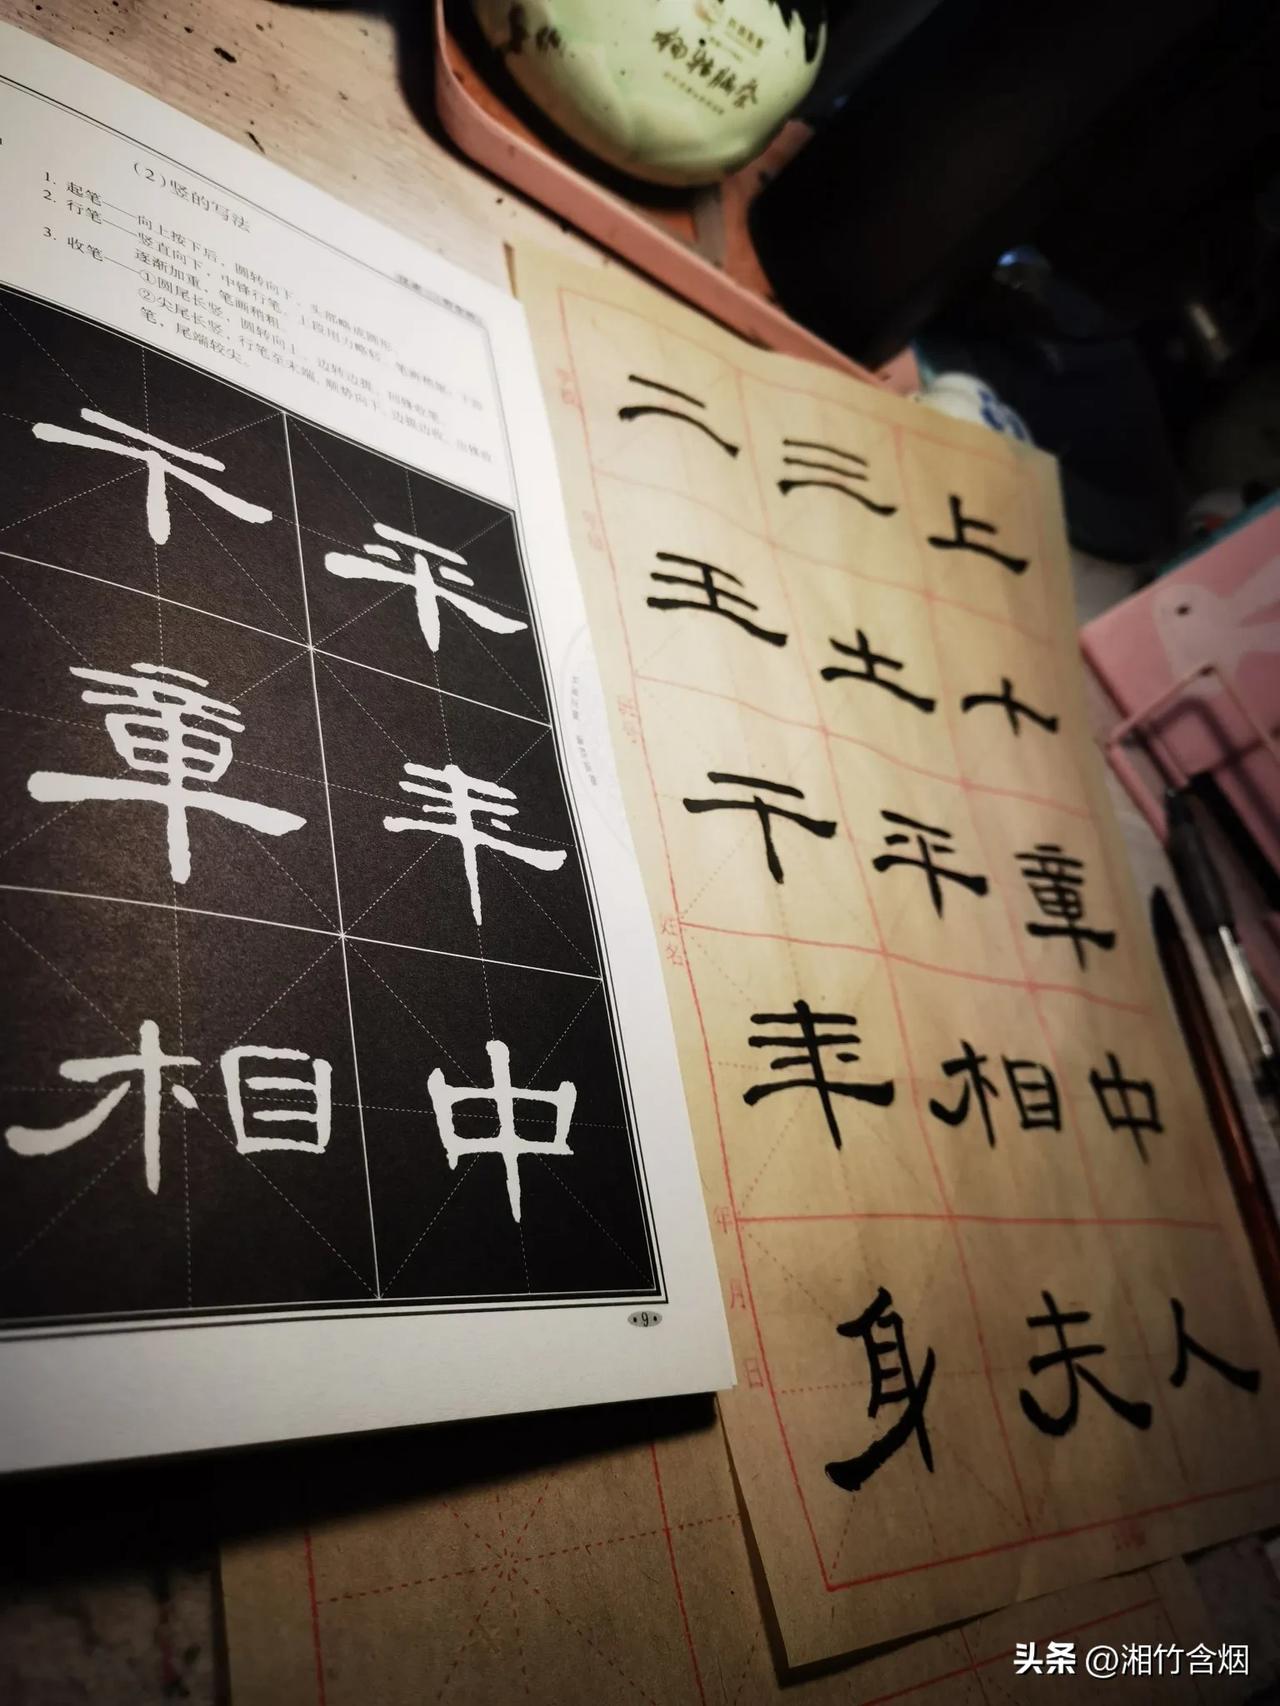 (2)竖的写法
1. 起笔——向上按下后，圆转向下，头部略成圆形。
2. 行笔——竖直向下，中锋行笔，上段用力略轻，笔画稍细，下段
逐渐加重，笔画稍粗。
3. 收笔——①圆尾长竖，圆转向上，边转边提，回锋收笔。
②尖尾长竖，行笔至末端，顺势向下，边提边收，出锋收
笔，尾端较尖。
干 平
章 年
相 中
9
二 三 上
王 土 十
干 平 章
年 相 中
身 夫 人
姓名
年 月 日
头条 @湘竹含烟